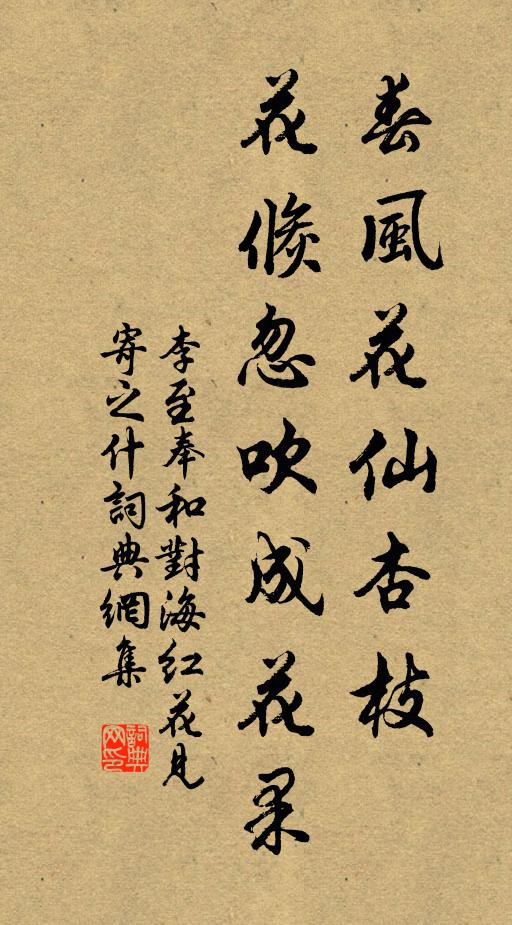 春風花仙杏枝
花倏忽吹成花果
李至奉和對海红花見
寄之什詞典網集
詞典網印